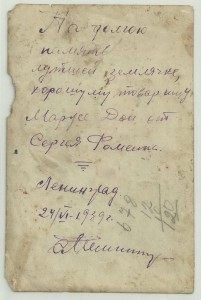 На долюк
память
лутшей землячке,
хорошему товарищу
Марусе Дои от
Сергея Фоменко.
Ленинград
24/VI-1939г.